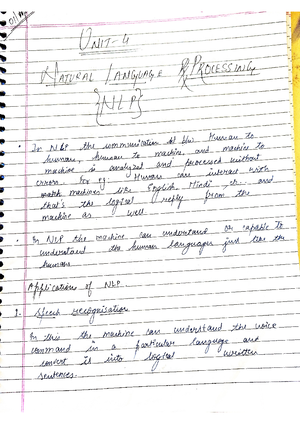 UNIT-4
NATURAL LANGUAGE PROCESSING
{NLP}
In NLP the communication of b/w Human to
human, human to machine and machine to
machine is analyzed and processed without
errors. for eg. Humans can interact with
machines like English Hindi etc. and
that's the logical reply from the
machine as well.
In NLP the machine can understand or capable to
understand the human languages just like the
humans.
Applications of NLP
1. Speech recognisation
In this the machine can understand the voice
command in a particular language and
convert it into logical written
sentences.